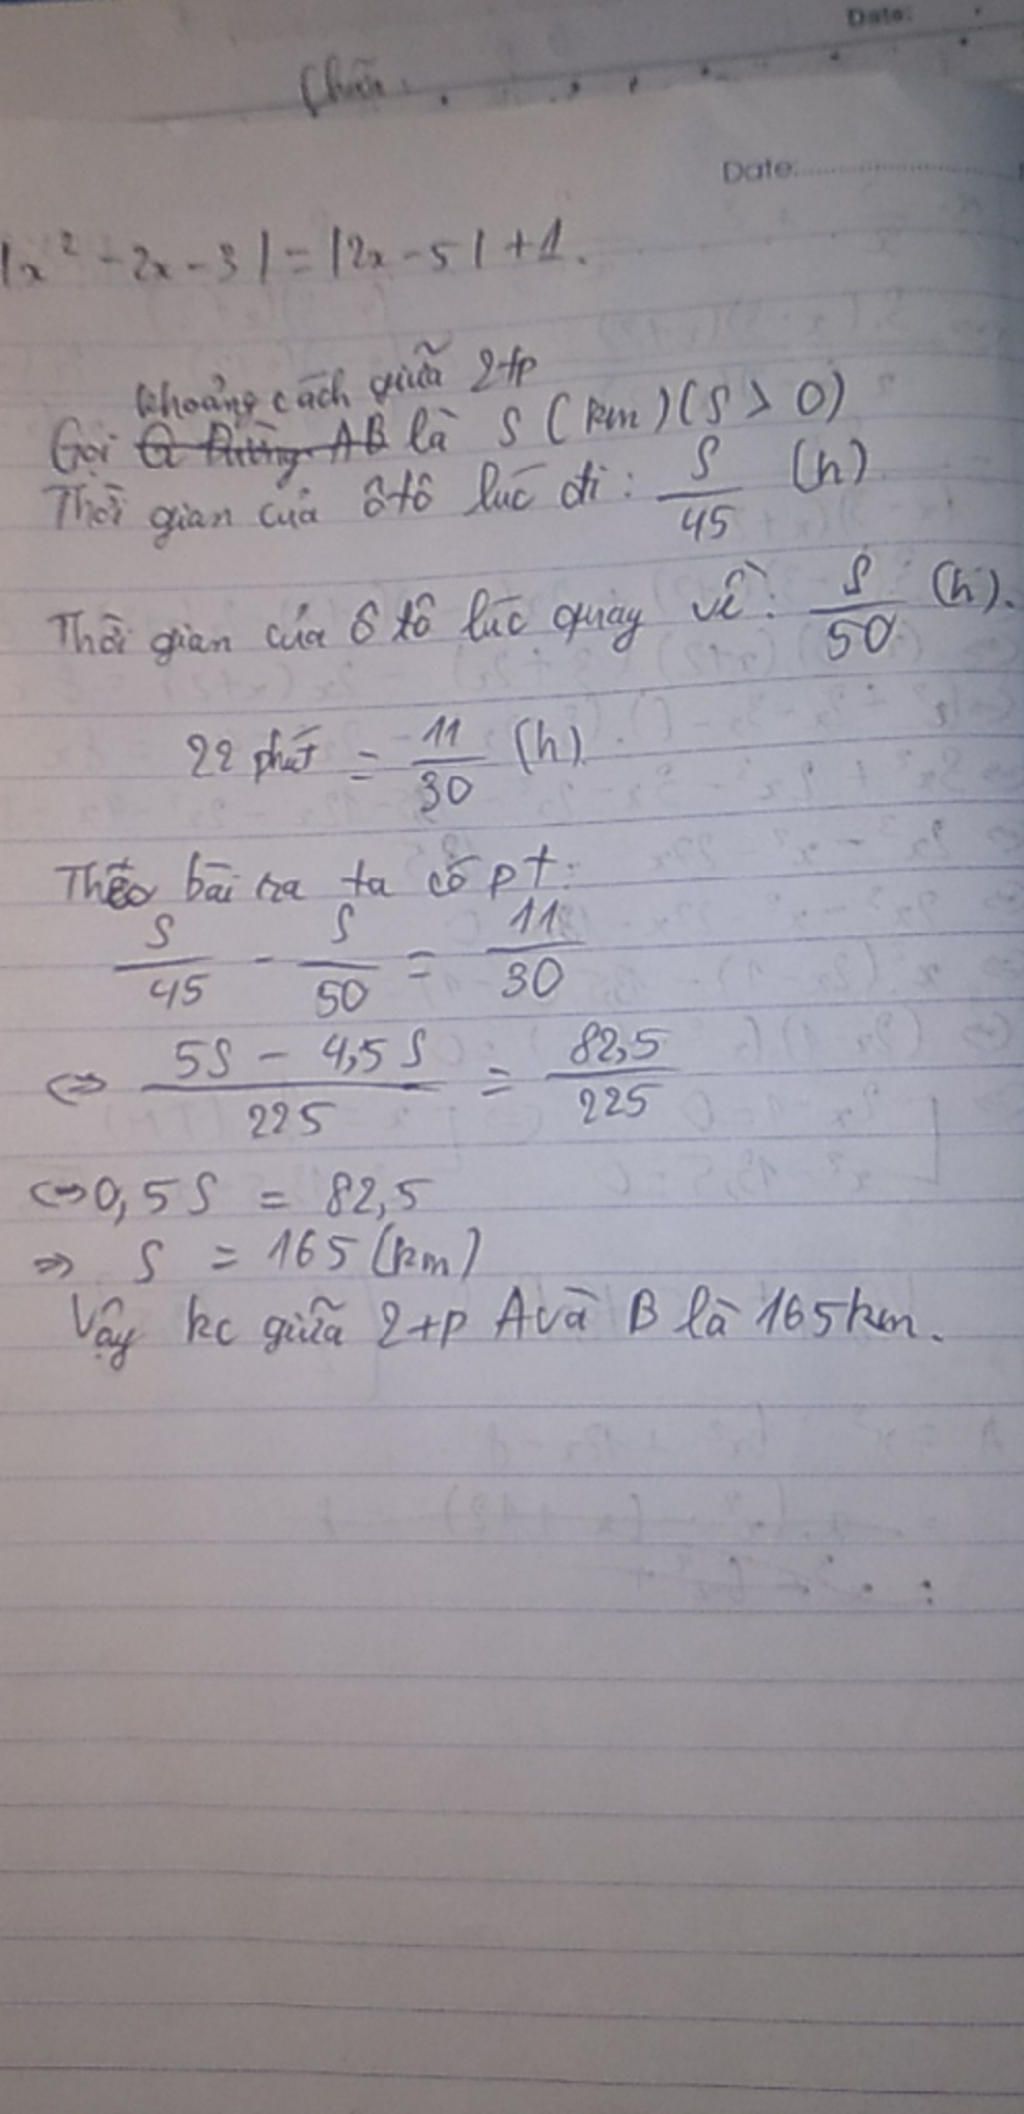 Date:
Date:
|x² - 2x - 3| = |2x - 5| + 1.
khoảng cách giữa 2tp
Gọi AB là S (km) (S > 0)
Thời gian của ôtô lúc đi: S/45 (h)
Thời gian của ô tô lúc quay về: S/50 (h).
22 phút = 11/30 (h)
Theo bài ra ta có pt:
S/45 - S/50 = 11/30
⇔ (5S - 4,5S)/225 = 82,5/225
⇔ 0,5S = 82,5
⇒ S = 165 (km)
Vậy kc giữa 2tp A và B là 165km.